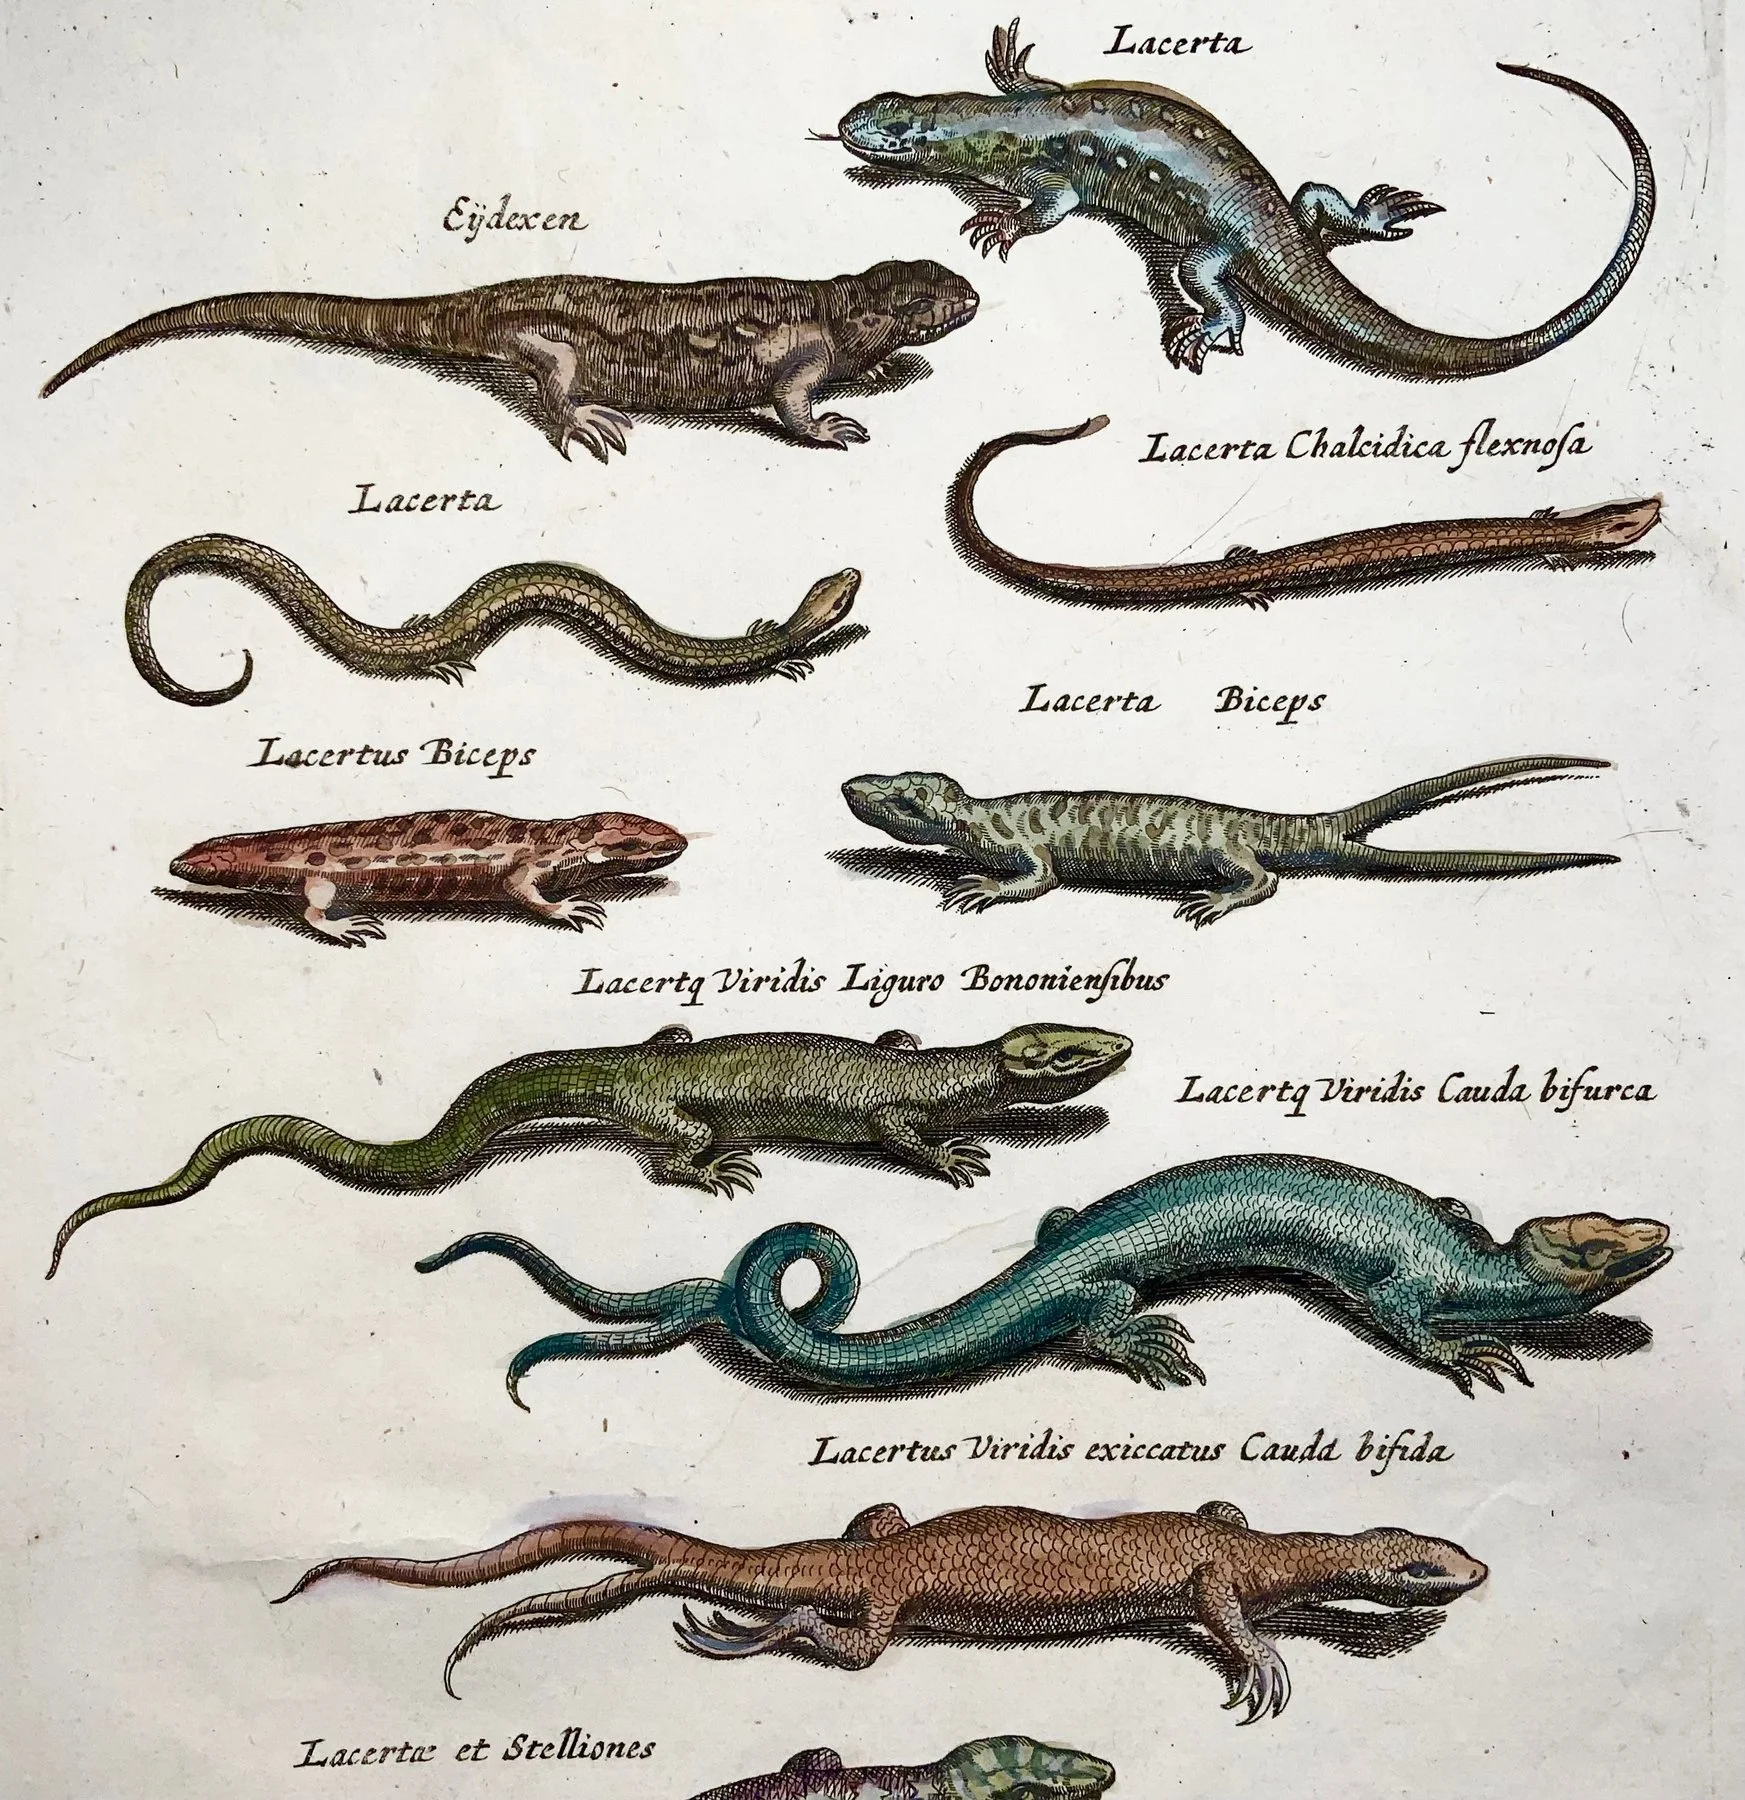 Lacerta
Eÿdexen
Lacerta Chalcidica flexnoſa
Lacerta
Lacerta Biceps
Lacertus Biceps
Lacertq Viridis Liguro Bononienſibus
Lacertq Viridis Cauda bifurca
Lacertus Viridis exiccatus Cauda bifida
Lacertæ et Stelliones